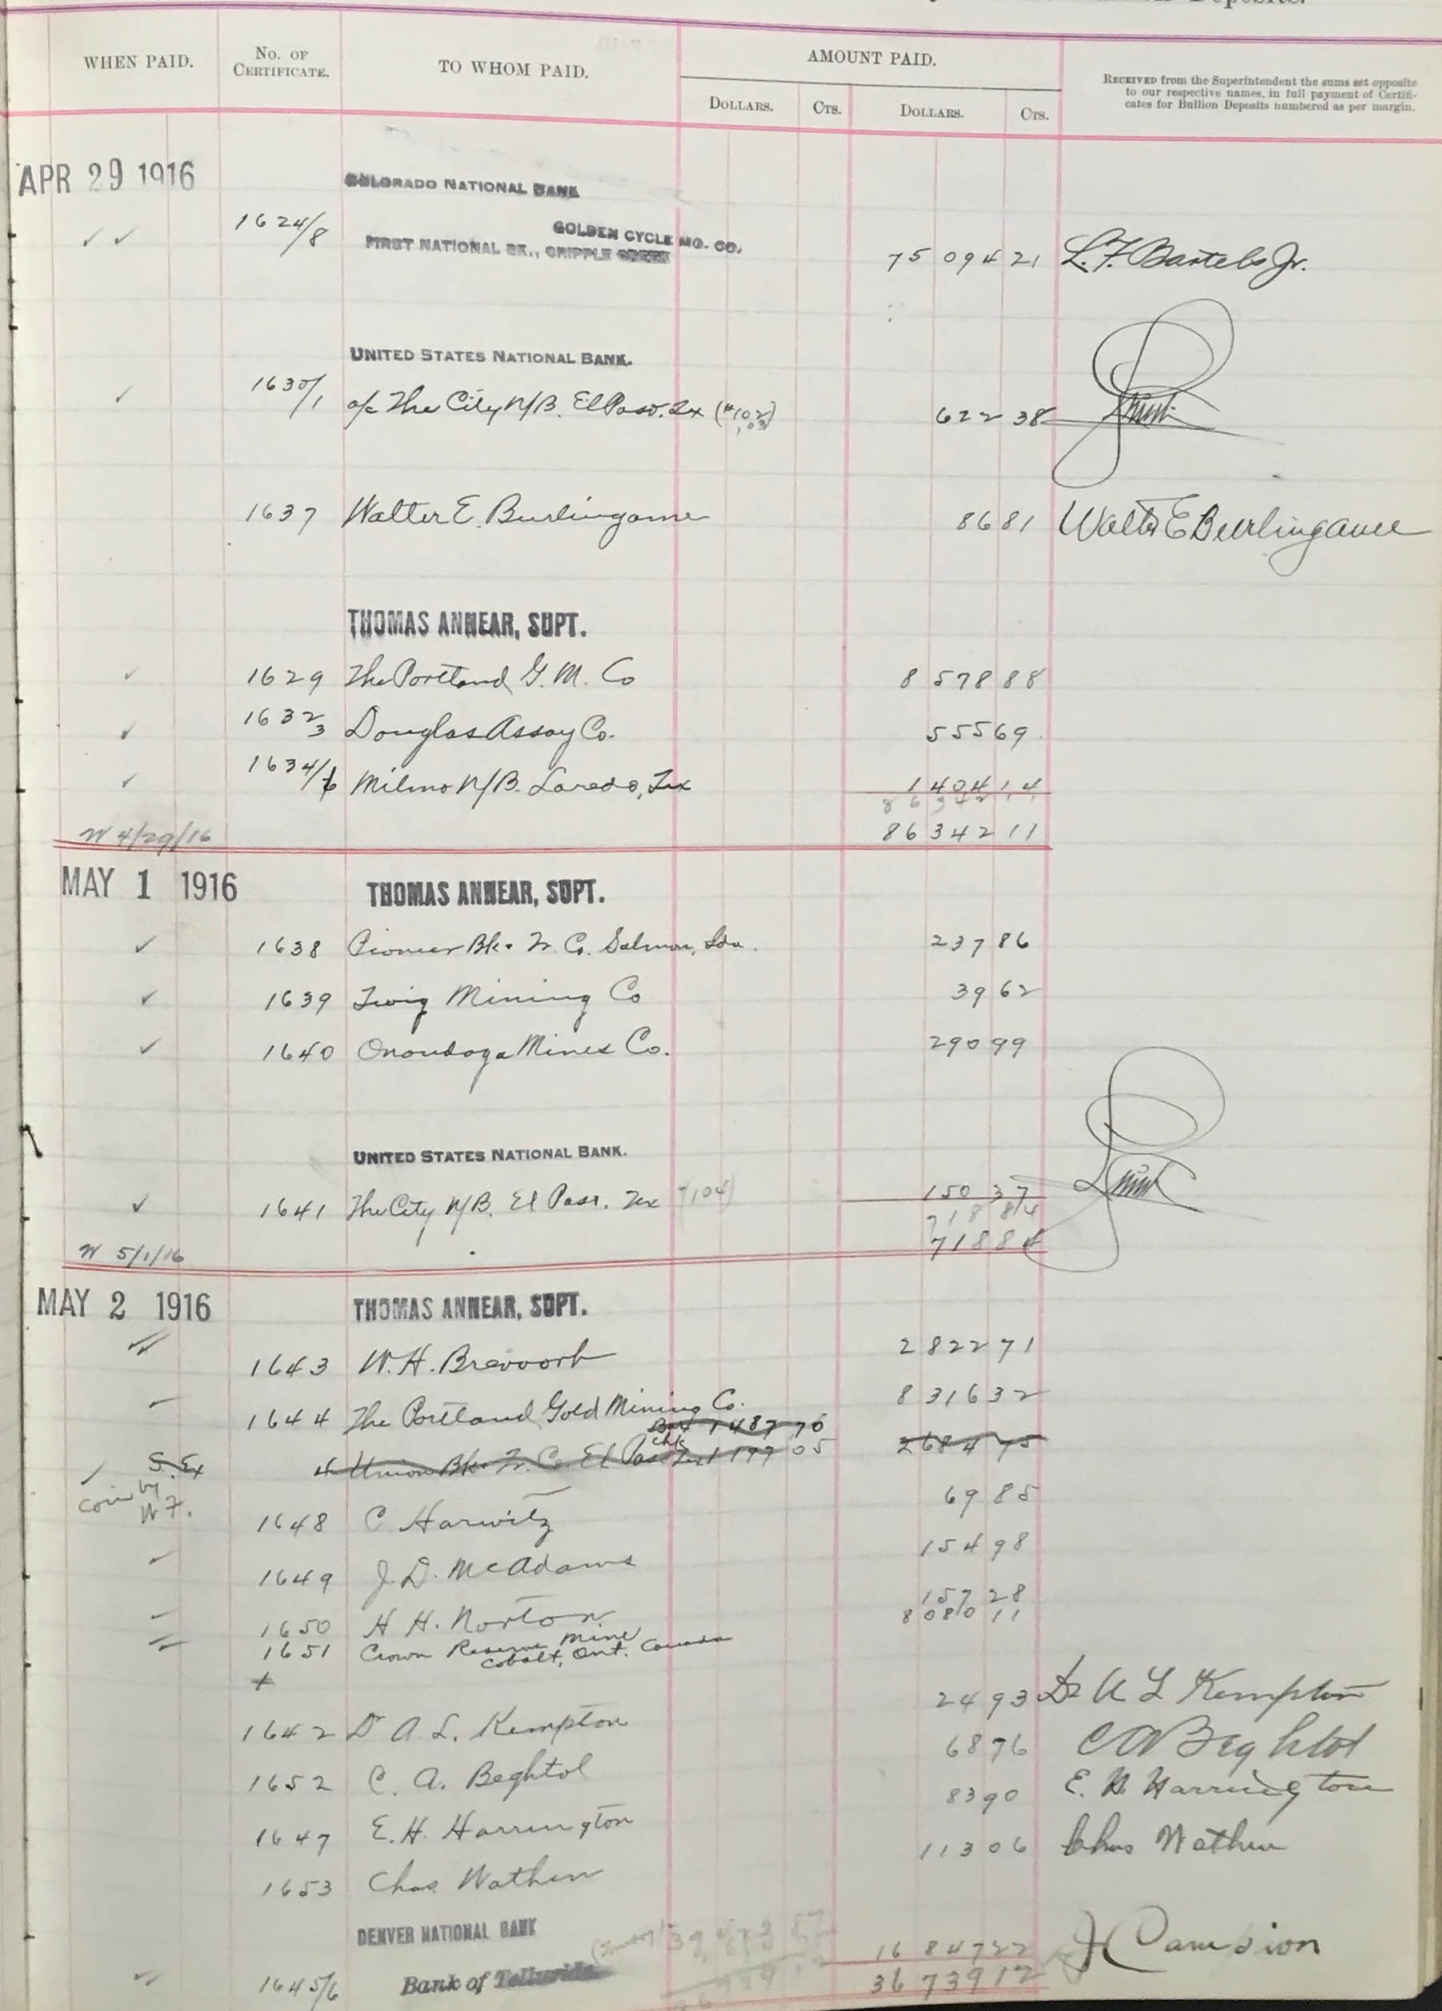 Deposits.
WHEN PAID. No. of Certificate. TO WHOM PAID. AMOUNT PAID. Dollars. Cts. Dollars. Cts.
Received from the Superintendent the sums set opposite
to our respective names, in full payment of Certifi-
cates for Bullion Deposits numbered as per margin.
APR 29 1916 COLORADO NATIONAL BANK
1624/8 GOLDEN CYCLE MG. CO.
FIRST NATIONAL BK., CRIPPLE CREEK 75 094 21 L. F. Bartels Jr.
UNITED STATES NATIONAL BANK.
1630/1 a/c The City N/B. El Paso. Tx (#102, 103) 622 38
1637 Walter E. Burlingame 86 81 Walter E Burlingame
THOMAS ANNEAR, SUPT.
1629 The Portland G. M. Co 8 578 88
1632/3 Douglas Assay Co. 555 69
1634/6 Milmo N/B. Laredo, Tex 1 404 14
86 342 11
W 4/29/16 86 342 11
MAY 1 1916 THOMAS ANNEAR, SUPT.
1638 Pioneer Bk. & Tr. Co. Salmon, Ida. 237 86
1639 Twig Mining Co 39 62
1640 Onondaga Mines Co. 290 99
UNITED STATES NATIONAL BANK.
1641 The City N/B. El Paso. Tex (104) 150 37
718 84
W 5/1/16 718 84
MAY 2 1916 THOMAS ANNEAR, SUPT.
1643 W. H. Brevoort 2 822 71
1644 The Portland Gold Mining Co. 8 316 32
1487 70
S. Ex Union Bk. & Tr. Co. El Paso Tex 1197 05 2684 75
Coin by W F. 1648 C Harwitz 69 85
1649 J. D. McAdams 154 98
1650 H H. Norton 157 28
1651 Crown Reserve Mine 8 080 11
Cobalt, Ont. Canada
1642 Dr A. L. Kempton 24 93 Dr A L Kempton
1652 C. A. Beghtol 68 76 C A Beghtol
1647 E. H. Harrington 83 90 E. H. Harrington
1653 Chas Wathen 113 06 Chas Wathen
DENVER NATIONAL BANK 39 423 87
1645/6 Bank of Telluride 16 847 22 J Campion
36 739 12